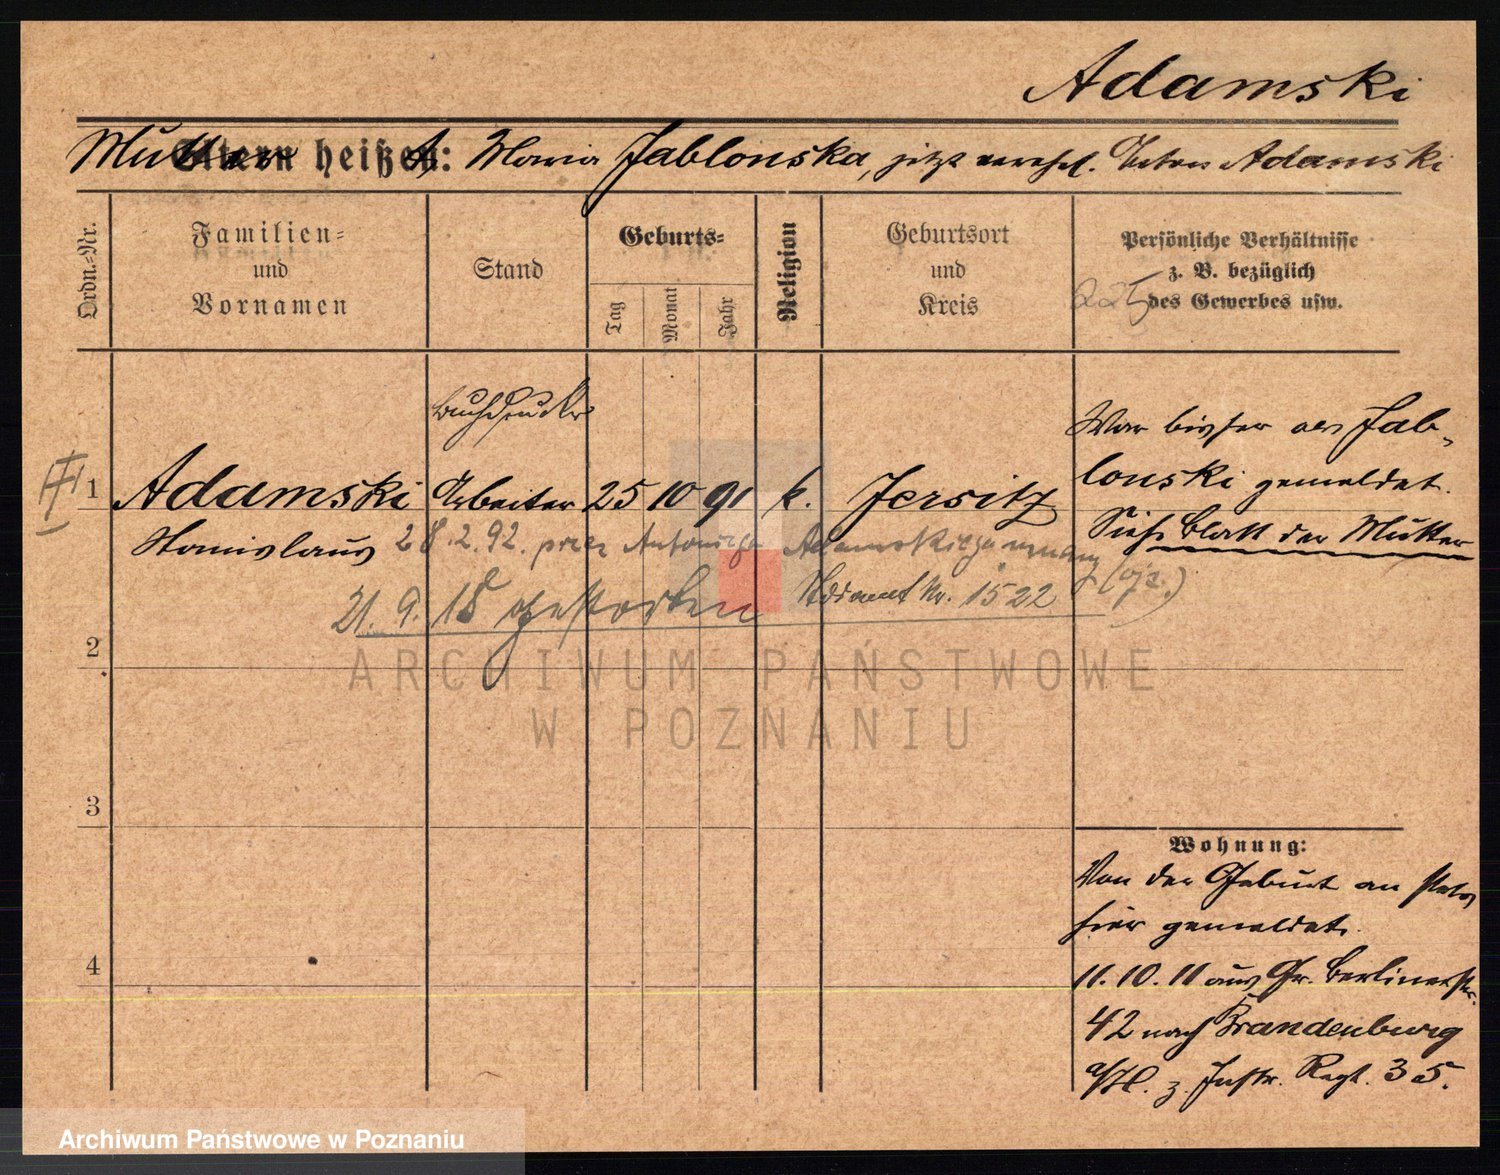 Adamski
Mutter heißt: Maria Jablonska, jetzt verehel. Adamski
Ordn.-Nr.
Familien- und Vornamen
Stand
Geburts-
Tag
Monat
Jahr
Religion
Geburtsort und Kreis
Persönliche Verhältnisse
z. B. bezüglich
des Gewerbes usw.
Buchdrucker
1 Adamski Arbeiter 25 10 91 k. Jersitz
Stanislaus
28.2.92. przez Antoniego Adamskiego uznany (ojz.)
21.9.18 gestorben Stdsamt Nr. 1522
War bisher als Jab-
lonski gemeldet.
Siehe Blatt der Mutter
2
3
4
Wohnung:
Von der Geburt an stets
hier gemeldet.
11.10.11 aus Gr. Berlinerstr.
42 nach Brandenburg
a/H. z. Inftr. Regt. 35.
ARCHIWUM PAŃSTWOWE
W POZNANIU
Archiwum Państwowe w Poznaniu